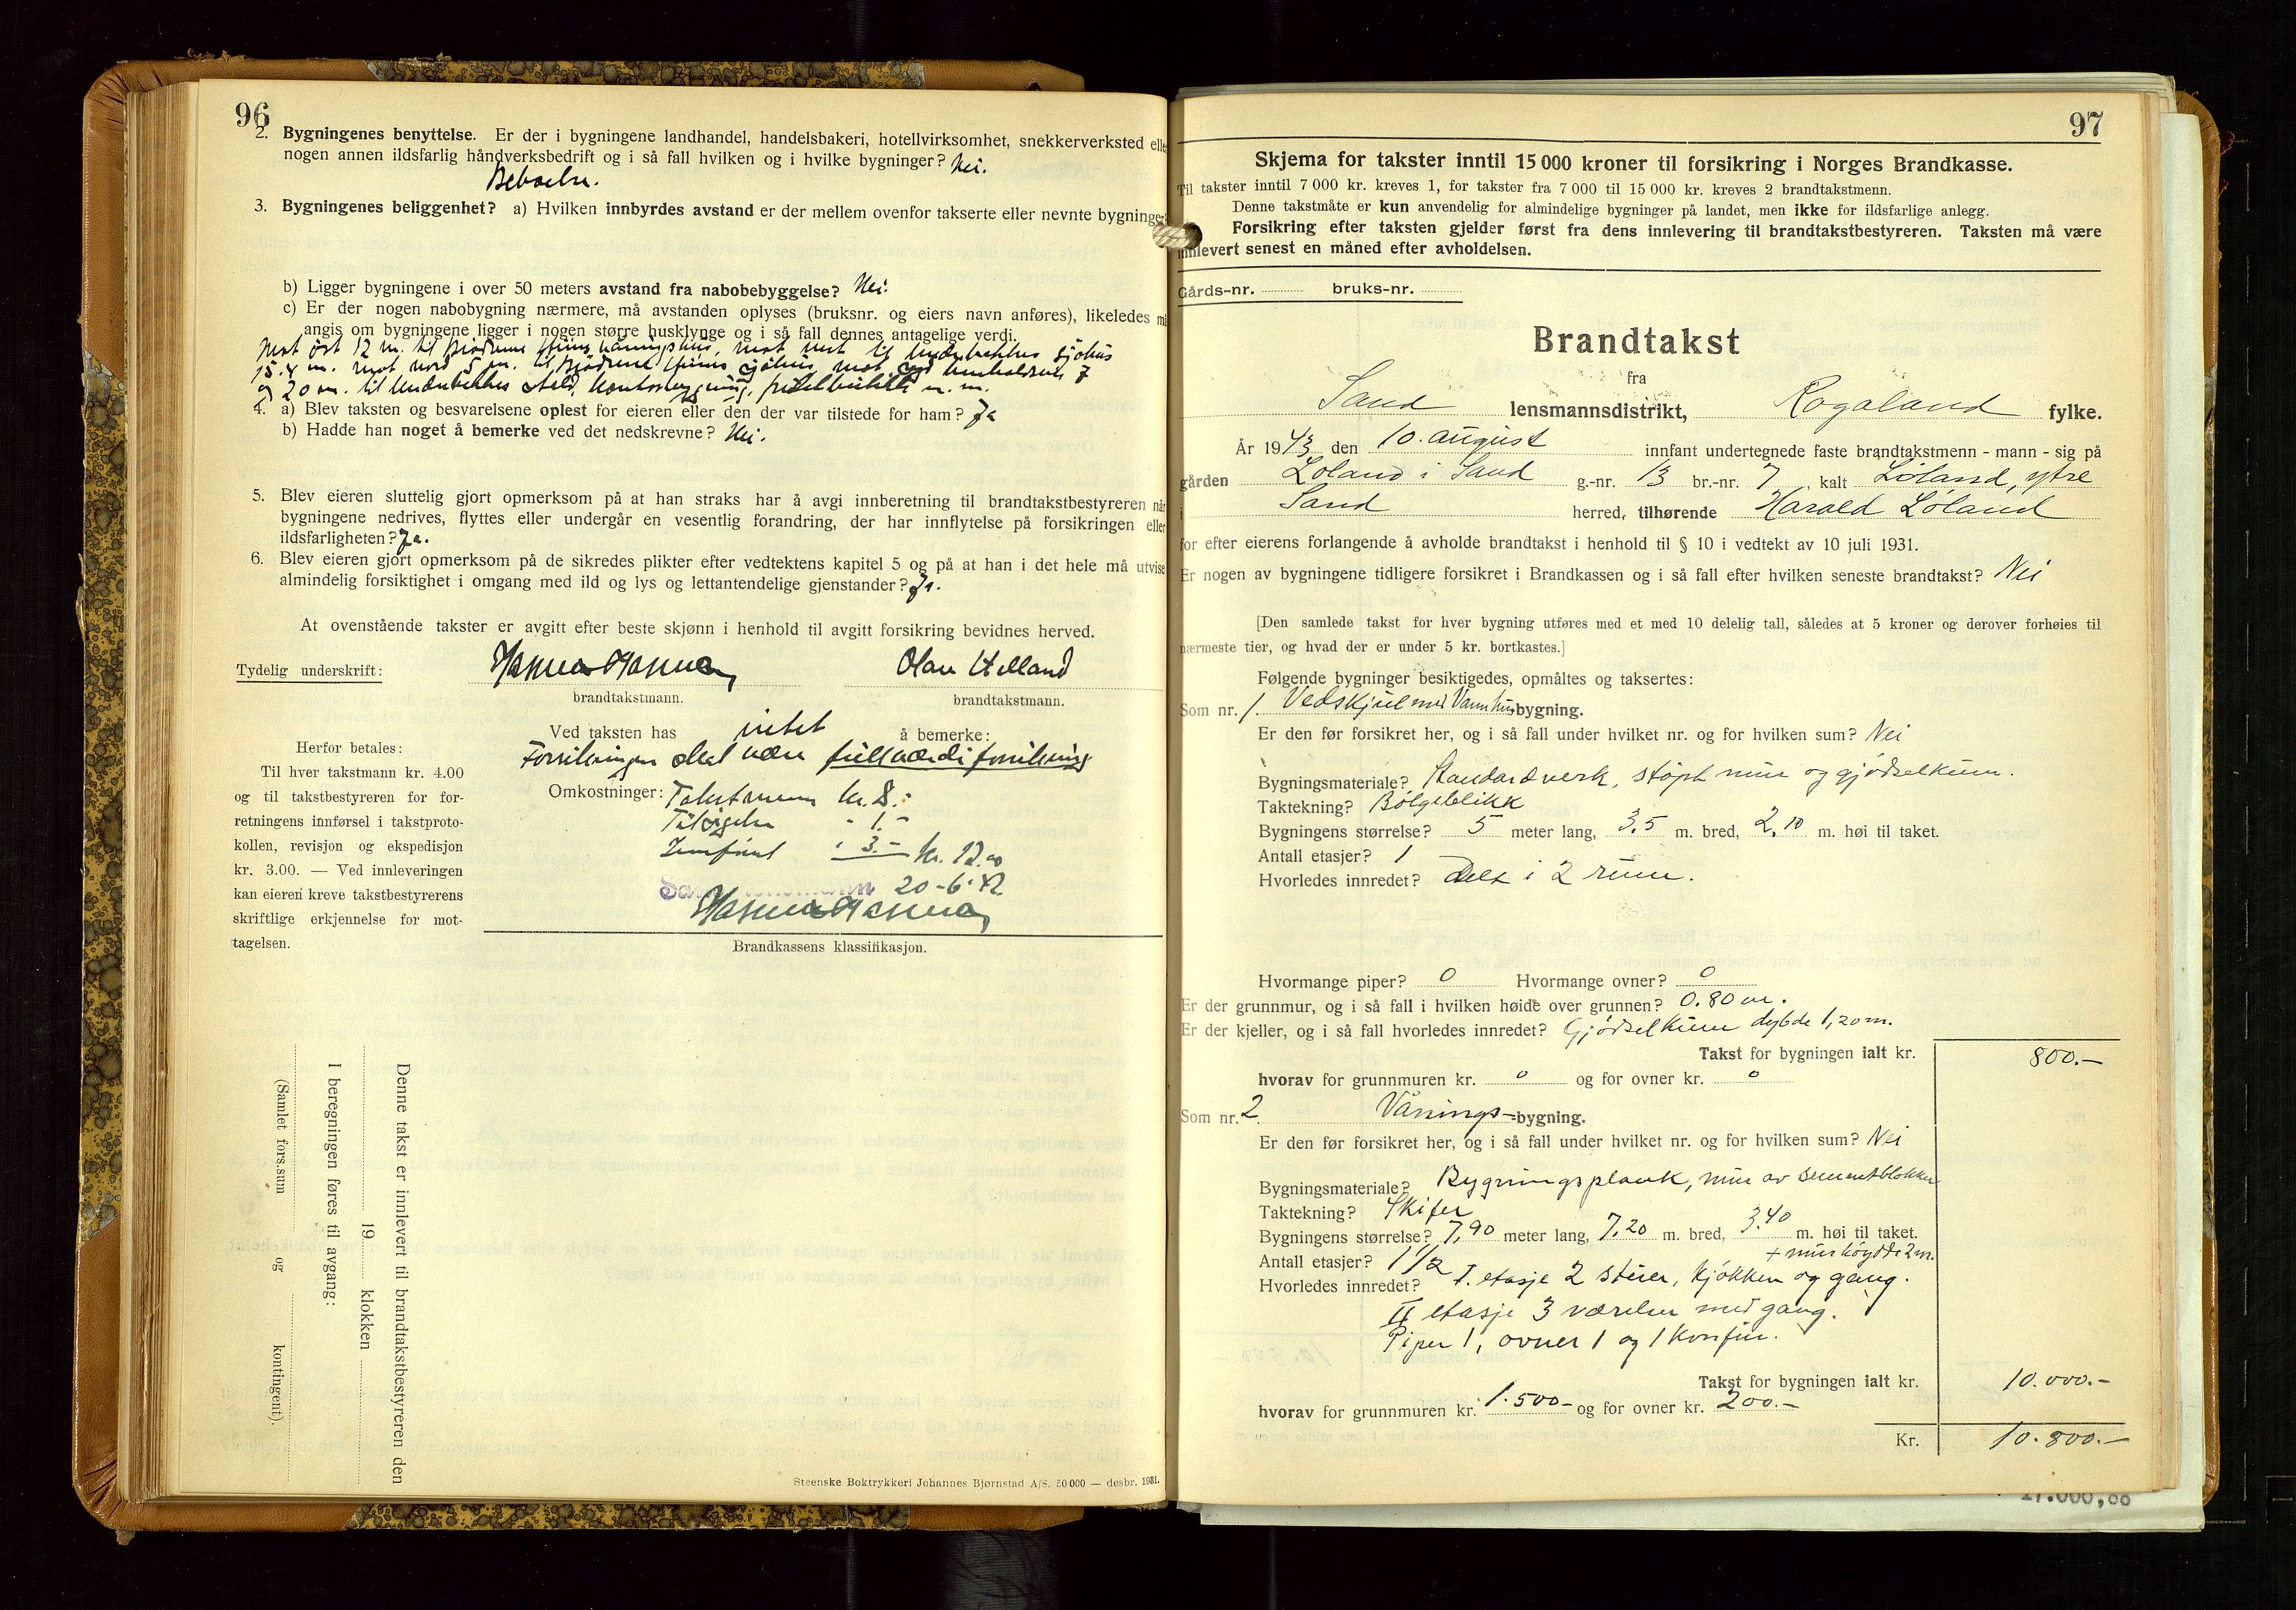 96
2. Bygningenes benyttelse. Er der i bygningene landhandel, handelsbakeri, hotellvirksomhet, snekkerverksted elle
nogen annen ildsfarlig håndverksbedrift og i så fall hvilken og i hvilke bygninger? Nei.
Beboelse.
3. Bygningenes beliggenhet? a) Hvilken innbyrdes avstand er der mellem ovenfor takserte eller nevnte bygninger
b) Ligger bygningene i over 50 meters avstand fra nabobebyggelse? Nei.
c) Er der nogen nabobygning nærmere, må avstanden oplyses (bruksnr. og eiers navn anføres), likeledes m
angis om bygningene ligger i nogen større husklynge og i så fall dennes antagelige verdi.
Mot øst 12 m. til våningshus, mot vest til sjøhus
15.4 m. mot nord 5 m. til sjøhus, mot syd 7
og 20 m. til m.m.
4. a) Blev taksten og besvarelsene oplest for eieren eller den der var tilstede for ham? Ja
b) Hadde han noget å bemerke ved det nedskrevne? Nei.
5. Blev eieren sluttelig gjort opmerksom på at han straks har å avgi innberetning til brandtakstbestyreren når
bygningene nedrives, flyttes eller undergår en vesentlig forandring, der har innflytelse på forsikringen eller
ildsfarligheten? Ja.
6. Blev eieren gjort opmerksom på de sikredes plikter efter vedtektens kapitel 5 og på at han i det hele må utvise
almindelig forsiktighet i omgang med ild og lys og lettantendelige gjenstander? Ja.
At ovenstående takster er avgitt efter beste skjønn i henhold til avgitt forsikring bevidnes herved.
Tydelig underskrift: Olav Helland
brandtakstmann. brandtakstmann.
Ved taksten has intet å bemerke:
Forsikringen skal være fullverdiforsikring
Herfor betales:
Til hver takstmann kr. 4.00
og til takstbestyreren for for-
retningens innførsel i takstproto-
kollen, revisjon og ekspedisjon
kr. 3.00. — Ved innleveringen
kan eieren kreve takstbestyrerens
skriftlige erkjennelse for mot-
tagelsen.
Omkostninger: Takstmenn kr. 8.-
" 1.-
Innførsel " 3.- kr. 12.00
20-6-42
Brandkassens klassifikasjon.
Denne takst er innlevert til brandtakstbestyreren den
19 klokken
I beregningen føres til avgang:
(Samlet fors.sum og kontingent).
Steenske Boktrykkeri Johannes Bjørnstad A/S. 50 000 — desbr. 1931.
97
Skjema for takster inntil 15 000 kroner til forsikring i Norges Brandkasse.
Til takster inntil 7 000 kr. kreves 1, for takster fra 7 000 til 15 000 kr. kreves 2 brandtakstmenn.
Denne takstmåte er kun anvendelig for almindelige bygninger på landet, men ikke for ildsfarlige anlegg.
Forsikring efter taksten gjelder først fra dens innlevering til brandtakstbestyreren. Taksten må være
innlevert senest en måned efter avholdelsen.
Gårds-nr. bruks-nr.
Brandtakst
fra
Sand lensmannsdistrikt, Rogaland fylke.
År 1943 den 10. august innfant undertegnede faste brandtakstmenn - mann - sig på
gården Løland i Sand g.-nr. 13 br.-nr. 7 kalt Løland, ytre
i Sand herred, tilhørende Harald Løland
for efter eierens forlangende å avholde brandtakst i henhold til § 10 i vedtekt av 10 juli 1931.
Er nogen av bygningene tidligere forsikret i Brandkassen og i så fall efter hvilken seneste brandtakst? Nei
[Den samlede takst for hver bygning utføres med et med 10 delelig tall, således at 5 kroner og derover forhøies til
nærmeste tier, og hvad der er under 5 kr. bortkastes.]
Følgende bygninger besiktigedes, opmåltes og taksertes:
Som nr. 1. Vedskjul med Vannhus-bygning.
Er den før forsikret her, og i så fall under hvilket nr. og for hvilken sum? Nei
Bygningsmateriale? Standardverk, støpt mur og gjødselkum.
Taktekning? Bølgeblikk
Bygningens størrelse? 5 meter lang, 3.5 m. bred, 2,10 m. høi til taket.
Antall etasjer? 1
Hvorledes innredet? Delt i 2 rum.
Hvormange piper? 0 Hvormange ovner? 0
Er der grunnmur, og i så fall i hvilken høide over grunnen? 0.80 m.
Er der kjeller, og i så fall hvorledes innredet? Gjødselkum dybde 1,20 m.
Takst for bygningen ialt kr. 800.-
hvorav for grunnmuren kr. 0 og for ovner kr. 0
Som nr. 2. Vånings-bygning.
Er den før forsikret her, og i så fall under hvilket nr. og for hvilken sum? Nei
Bygningsmateriale? Bygningsplank, mur av sementblokker
Taktekning? Skifer
Bygningens størrelse? 7,90 meter lang, 7,20 m. bred, 3.40 m. høi til taket.
+ murhøyde 2 m.
Antall etasjer? 1 1/2
Hvorledes innredet? I. etasje 2 stuer, kjøkken og gang.
II etasje 3 værelser med gang.
Piper 1, ovner 1 og 1 komfur.
Takst for bygningen ialt kr. 10.000.-
hvorav for grunnmuren kr. 1.500- og for ovner kr. 200.-
Kr. 10.800.-